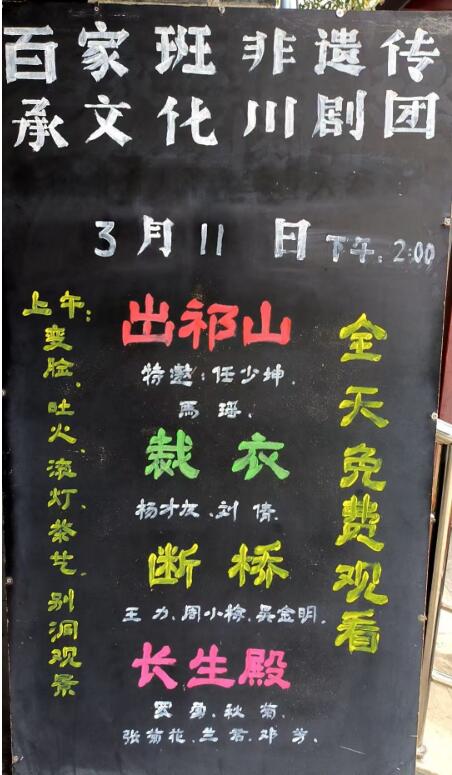 百家班非遗传
承文化川剧团
3月11日下午:2:00
上午:变脸、吐火、滚灯、茶艺、别洞观景
出祁山
特邀:任少坤、
马瑶、
裁衣
杨才友、刘倩、
断桥
王力、周小椋、吴金明、
长生殿
罗勇、秋菊、
张菊花、兰君、邓芳、
全天免费观看